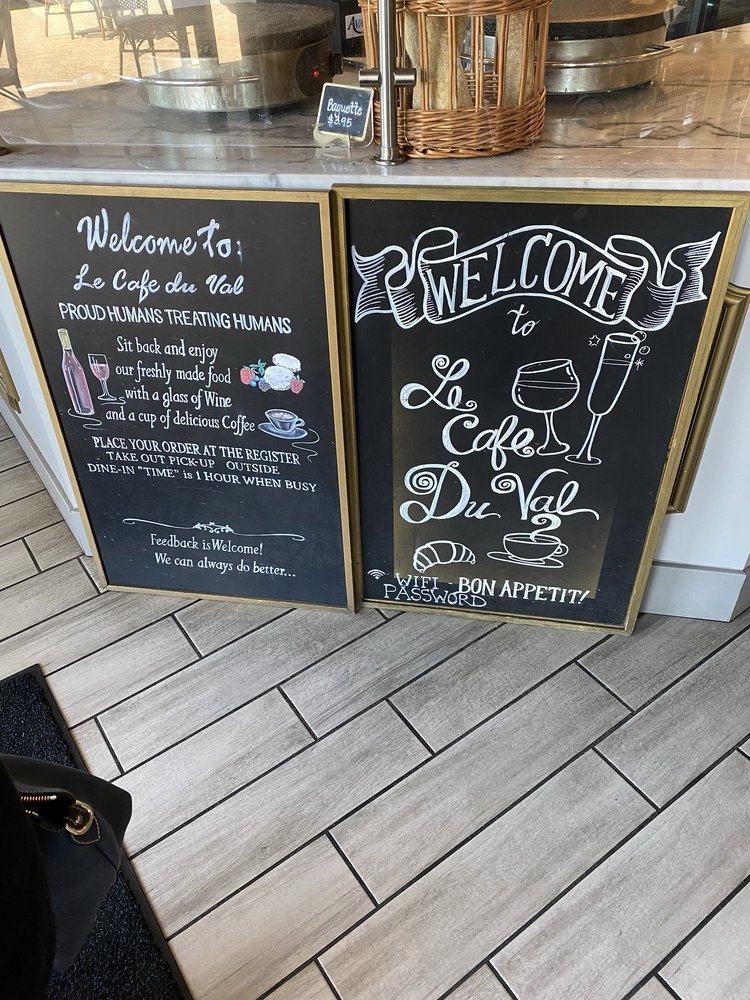 Baguette
$3.95
Welcome to:
Le Cafe du Val
PROUD HUMANS TREATING HUMANS
Sit back and enjoy
our freshly made food
with a glass of Wine
and a cup of delicious Coffee
PLACE YOUR ORDER AT THE REGISTER
TAKE OUT PICK-UP OUTSIDE
DINE-IN "TIME" is 1 HOUR WHEN BUSY
Feedback is Welcome!
We can always do better...
WELCOME
to
Le
Cafe
Du Val
WIFI - BON APPETIT!
PASSWORD